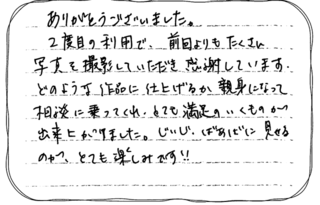 ありがとうございました。
2度目の利用で、前回よりもたくさん
写真を撮影していただき感謝しています。
どのような作品に仕上げるか親身になって
相談に乗ってくれ、とても満足のいくものが
出来上がりました。じいじ、ばあばに見せる
のが、とても楽しみです!!